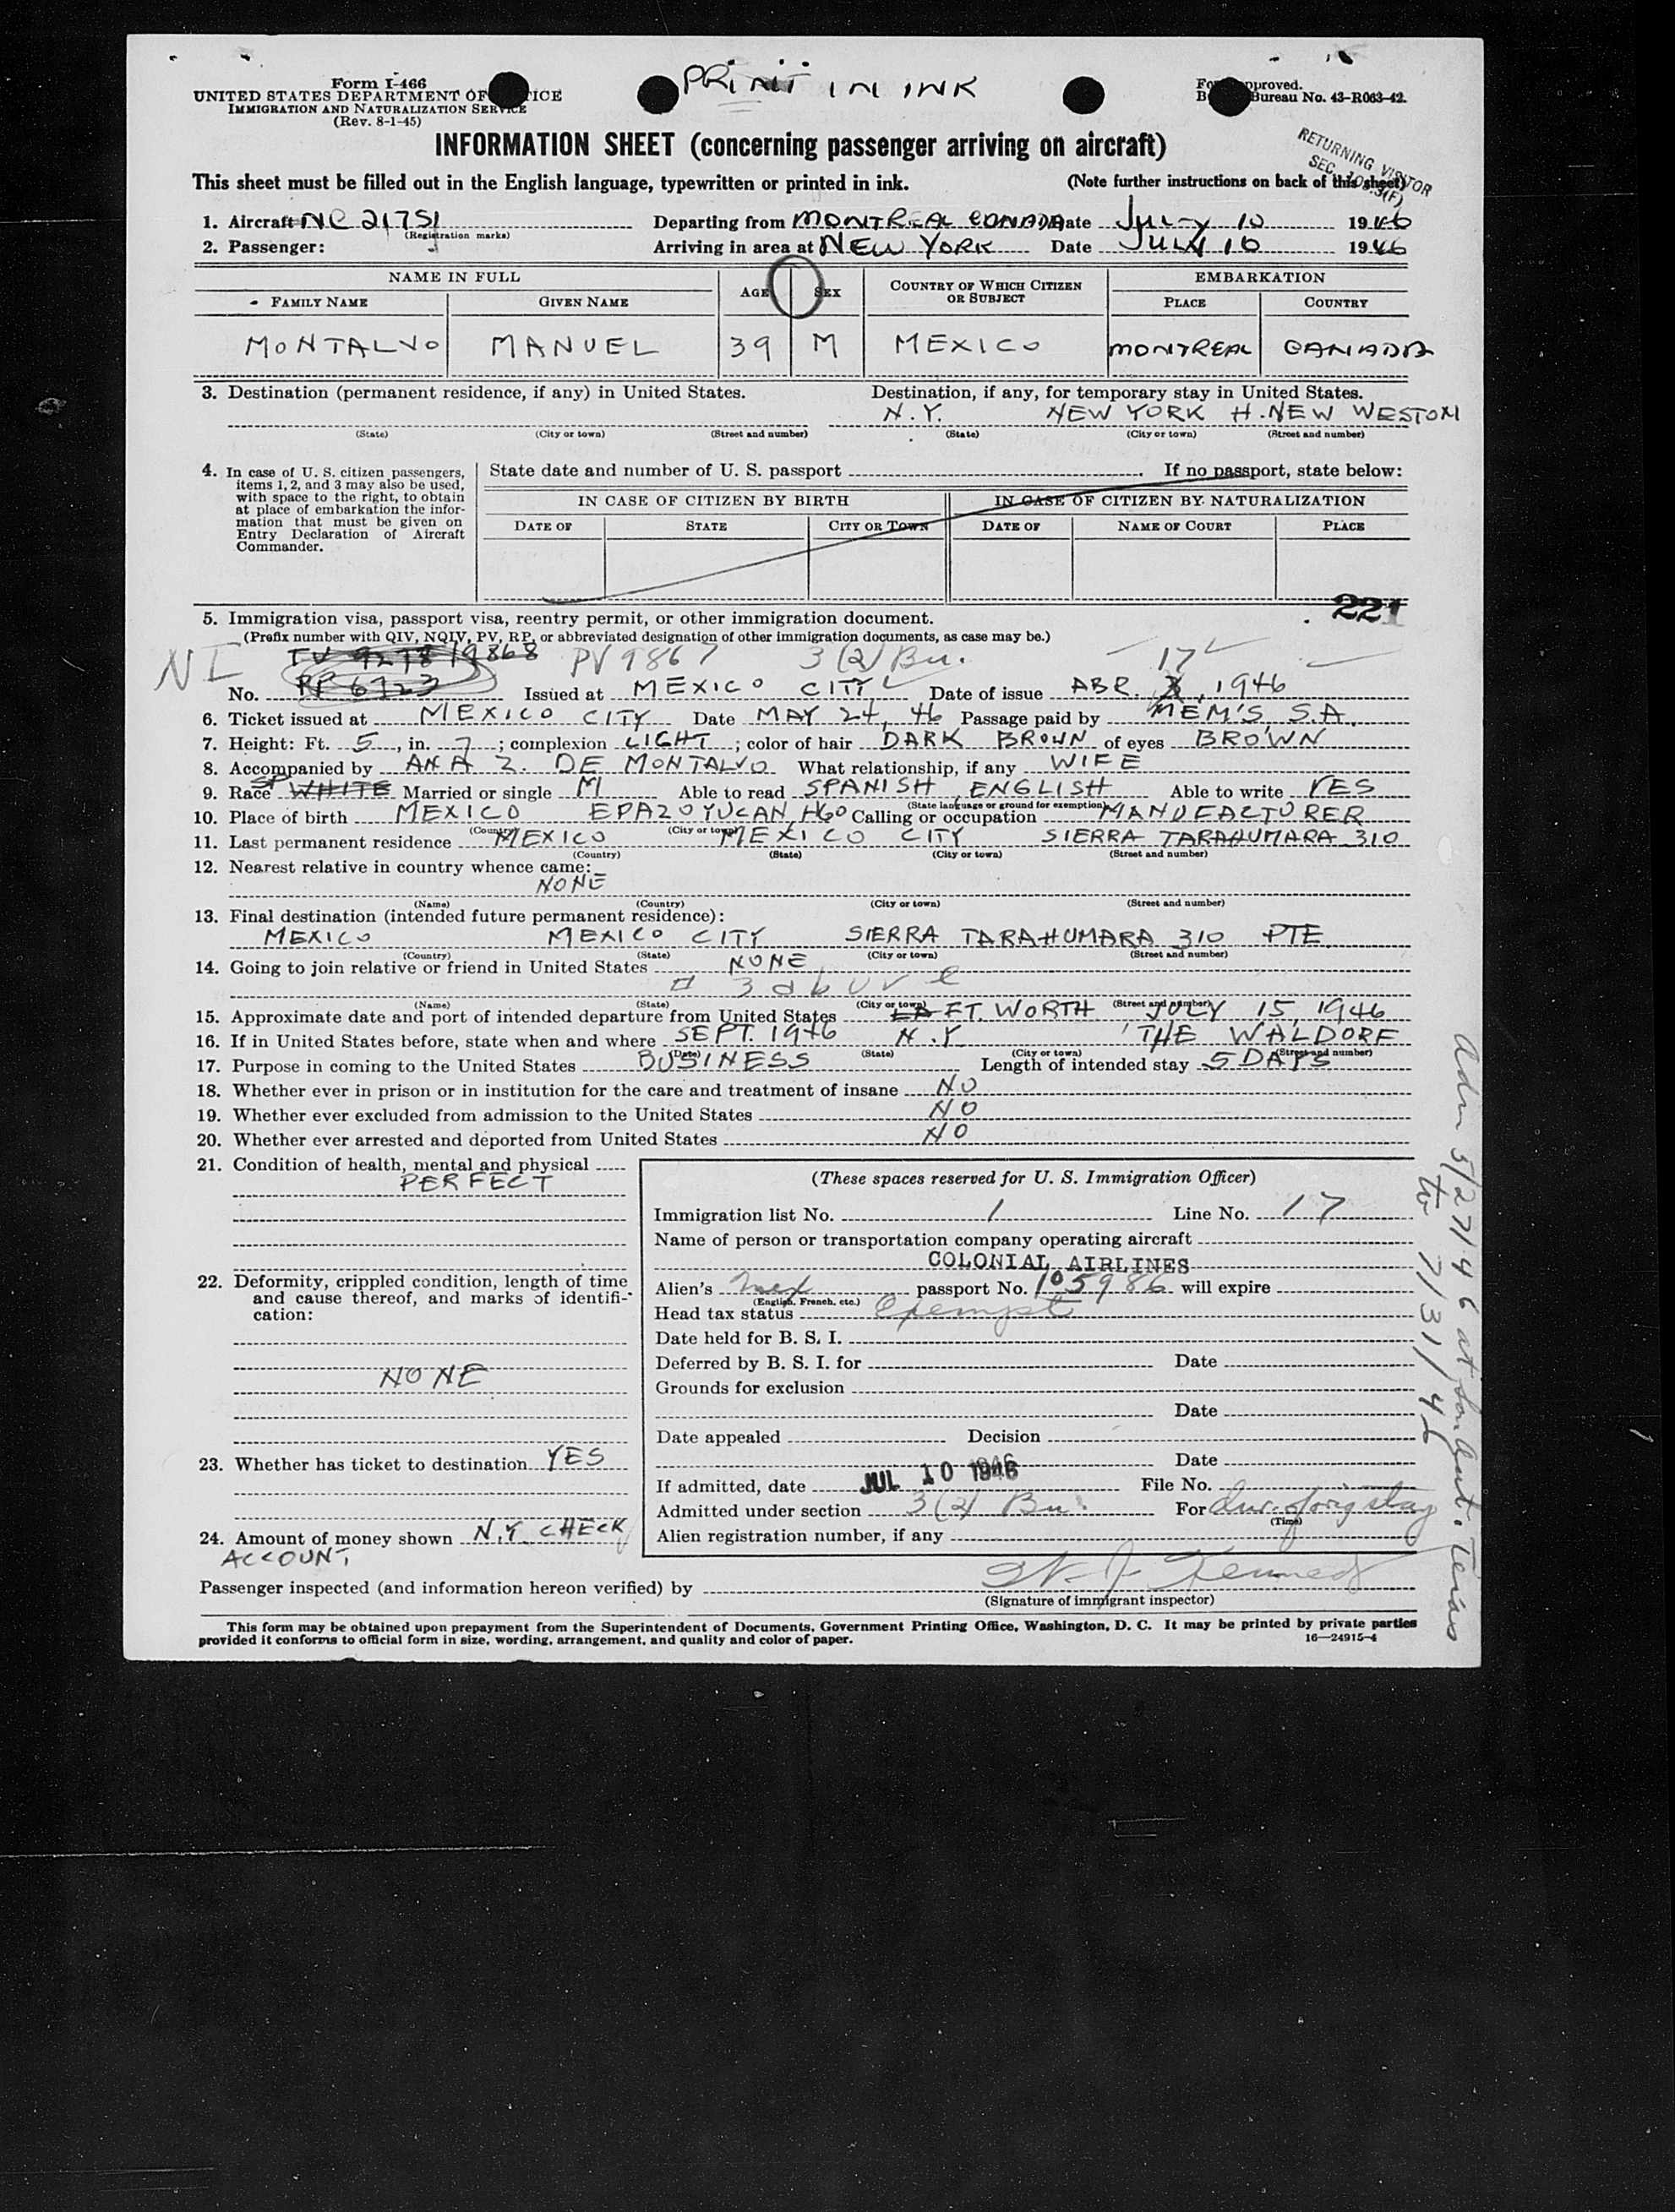 PRINT IN INK
Form I-466
UNITED STATES DEPARTMENT OF
IMMIGRATION AND NATURALIZATION SERVICE
(Rev. 8-1-45)
Bureau No. 43-R063-42.
INFORMATION SHEET (concerning passenger arriving on aircraft)
RETURNING VISITOR
SEC.
This sheet must be filled out in the English language, typewritten or printed in ink. (Note further instructions on back of this sheet)
1. Aircraft NC 21751 Departing from MONTREAL CANADA Date JULY 10 1946
(Registration marks)
2. Passenger: Arriving in area at NEW YORK Date JULY 10 1946
NAME IN FULL AGE SEX COUNTRY OF WHICH CITIZEN OR SUBJECT EMBARKATION
FAMILY NAME GIVEN NAME PLACE COUNTRY
MONTALVO MANUEL 39 M MEXICO MONTREAL CANADA
3. Destination (permanent residence, if any) in United States. Destination, if any, for temporary stay in United States.
N.Y. NEW YORK H. NEW WESTON
(State) (City or town) (Street and number) (State) (City or town) (Street and number)
4. In case of U. S. citizen passengers, items 1, 2, and 3 may also be used, with space to the right, to obtain at place of embarkation the information that must be given on Entry Declaration of Aircraft Commander.
State date and number of U. S. passport If no passport, state below:
IN CASE OF CITIZEN BY BIRTH IN CASE OF CITIZEN BY NATURALIZATION
DATE OF STATE CITY OR TOWN DATE OF NAME OF COURT PLACE
221
5. Immigration visa, passport visa, reentry permit, or other immigration document.
(Prefix number with QIV, NQIV, PV, RP, or abbreviated designation of other immigration documents, as case may be.)
NI PV 9867 3(2) Bu. 17
No. RP 6923 Issued at MEXICO CITY Date of issue ABR. , 1946
6. Ticket issued at MEXICO CITY Date MAY 24, 46 Passage paid by MEM'S S.A.
7. Height: Ft. 5, in. 7; complexion LIGHT; color of hair DARK BROWN of eyes BROWN
8. Accompanied by ANA Z. DE MONTALVO What relationship, if any WIFE
9. Race SP WHITE Married or single M Able to read SPANISH, ENGLISH Able to write YES
(State language or ground for exemption)
10. Place of birth MEXICO EPAZOYUCAN, HGO Calling or occupation MANUFACTURER
(Country) (City or town)
11. Last permanent residence MEXICO MEXICO CITY SIERRA TARAHUMARA 310
(Country) (State) (City or town) (Street and number)
12. Nearest relative in country whence came:
NONE
(Name) (Country) (City or town) (Street and number)
13. Final destination (intended future permanent residence):
MEXICO MEXICO CITY SIERRA TARAHUMARA 310 PTE
(Country) (State) (City or town) (Street and number)
14. Going to join relative or friend in United States NONE
# 3 above
(Name) (State) (City or town) (Street and number)
15. Approximate date and port of intended departure from United States FT. WORTH JULY 15, 1946
16. If in United States before, state when and where SEPT. 1946 N.Y. THE WALDORF
(Date) (State) (City or town) (Street and number)
17. Purpose in coming to the United States BUSINESS Length of intended stay 5 DAYS
18. Whether ever in prison or in institution for the care and treatment of insane NO
19. Whether ever excluded from admission to the United States NO
20. Whether ever arrested and deported from United States NO
21. Condition of health, mental and physical
PERFECT
22. Deformity, crippled condition, length of time and cause thereof, and marks of identification:
NONE
23. Whether has ticket to destination YES
24. Amount of money shown N.Y. CHECK
ACCOUNT
(These spaces reserved for U. S. Immigration Officer)
Immigration list No. 1 Line No. 17
Name of person or transportation company operating aircraft
COLONIAL AIRLINES
Alien's Mex passport No. 105986 will expire
(English, French, etc.)
Head tax status Exempt
Date held for B. S. I.
Deferred by B. S. I. for Date
Grounds for exclusion
Date
Date appealed Decision
Date
If admitted, date JUL 10 1946 File No.
Admitted under section 3(2) Bu. For dur. of orig stay
(Time)
Alien registration number, if any
Passenger inspected (and information hereon verified) by
(Signature of immigrant inspector)
This form may be obtained upon prepayment from the Superintendent of Documents, Government Printing Office, Washington, D. C. It may be printed by private parties
provided it conforms to official form in size, wording, arrangement, and quality and color of paper. 16—24915-4
Adm 5/27/46 at San Ant. Texas
to 7/31/46